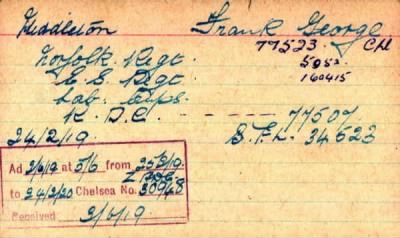 Middleton Frank George
Norfolk Regt 77523 Cpl
E. S. Regt 5952
Lab. Corps. 160415
R. D. C. - - - - - - 77507
24/2/19. S.F.L. 34523
Ad 2/6/19 at 5/6 from 25/2/19.
to 24/2/20 Chelsea No.
Received 2/6/19.